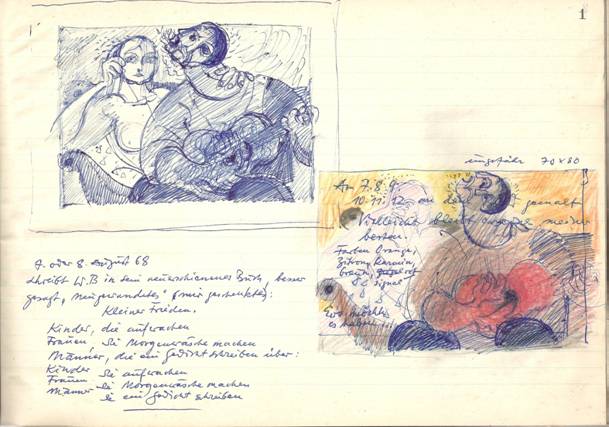 1
ungefähr 70 x 80
Am 7. 8. 9.
10. 11. 12. an de gemalt
Vielleicht bleibt meine
besten.
Farben Orange,
Zitron, Karmin,
braun,
signal
es haben
7. oder 8. August 68
schreibt W.B in sein neuerschienenes Buch, besser
gesagt,
Kleiner Frieden.
Kinder, die aufwachen
Frauen, die Morgenwäsche machen
Männer, die ein Gedicht schreiben über:
Kinder die aufwachen
Frauen die Morgenwäsche machen
Männer die ein Gedicht schreiben